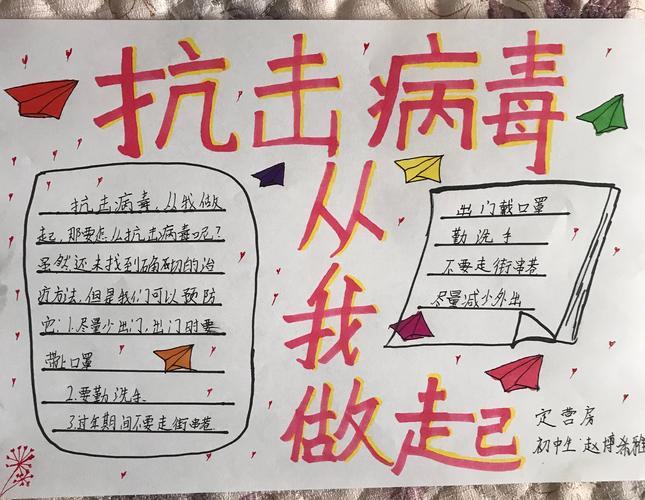 抗击病毒
从
我
做起
抗击病毒，从我做
起，那要怎么抗击病毒呢？
虽然还未找到确切的治
疗方法，但是我们可以预防
它：1.尽量少出门，出门时要
带上口罩
2.要勤洗手
3.过年期间不要走街串巷
出门戴口罩
勤洗手
不要走街串巷
尽量减少外出
定营房
初中生：赵博希